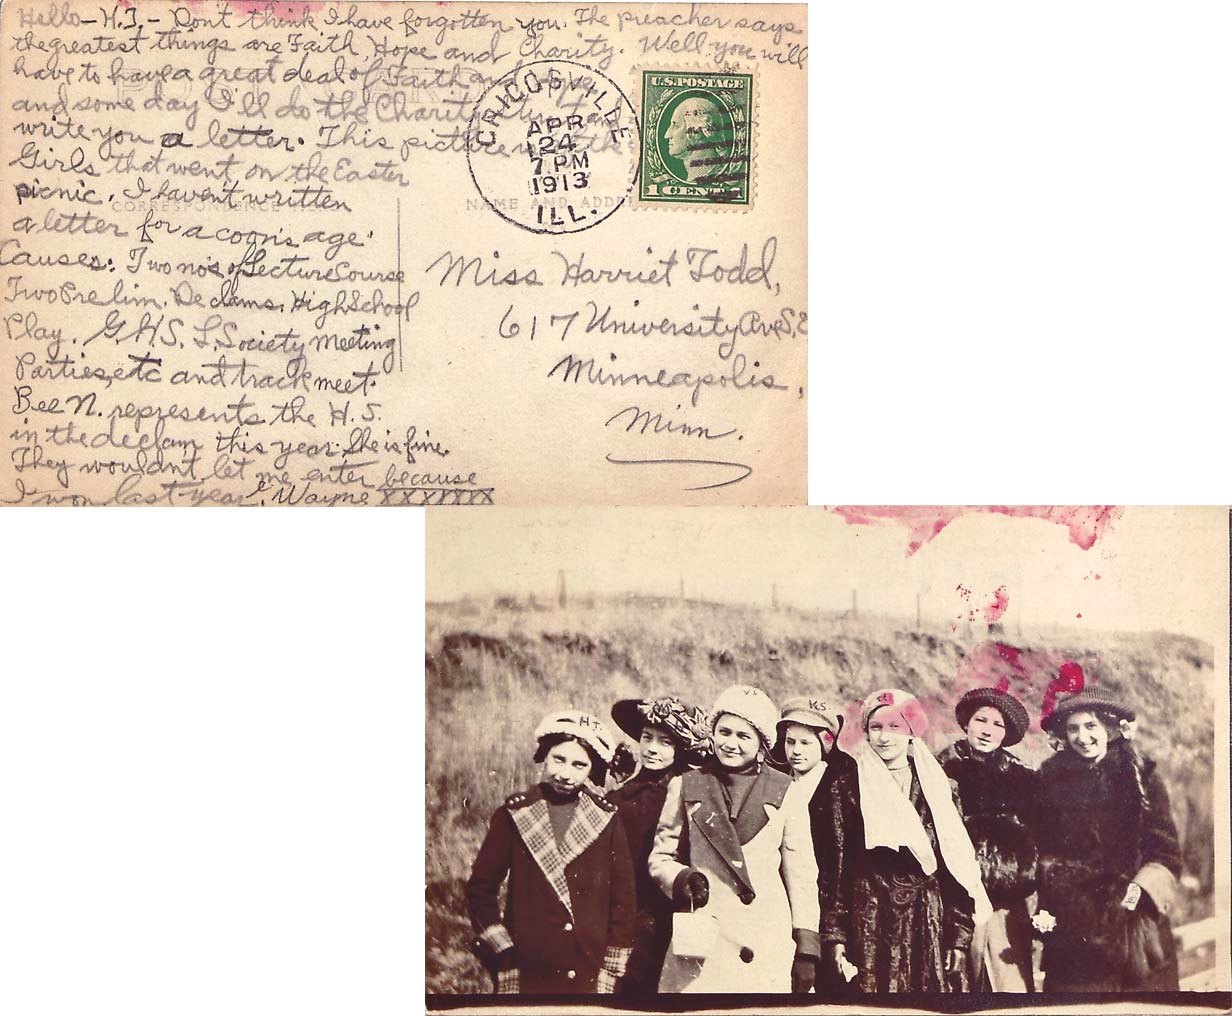 Hello - H.T. - Don't think I have forgotten you. The preacher says
the greatest things are Faith, Hope and Charity. Well you will
have to have a great deal of Faith and Hope
and some day I'll do the Charity stunt and
write you a letter. This picture the
Girls that went on the Easter
picnic. I haven't written
a letter for a coon's age.
Causes: Two no's of Lecture Course
Two Prelim. Declams. High School
Play. G.H.S. L. Society meeting
Parties, etc and track meet.
Bee N. represents the H.S.
in the declam this year. She is fine.
They wouldn't let me enter because
I won last year. Wayne XXXXXXX
POST CARD
CORRESPONDENCE HERE
NAME AND ADDRE
GRIGGSVILLE
APR
24
7 PM
1913
ILL.
U.S. POSTAGE
1 CENT 1
Miss Harriet Todd,
617 University Ave S.E
Minneapolis,
Minn.
H T
V L
K S.